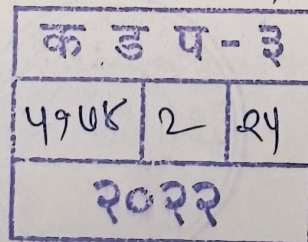 क ड प - ३
५१७४ २ २५
२०२२